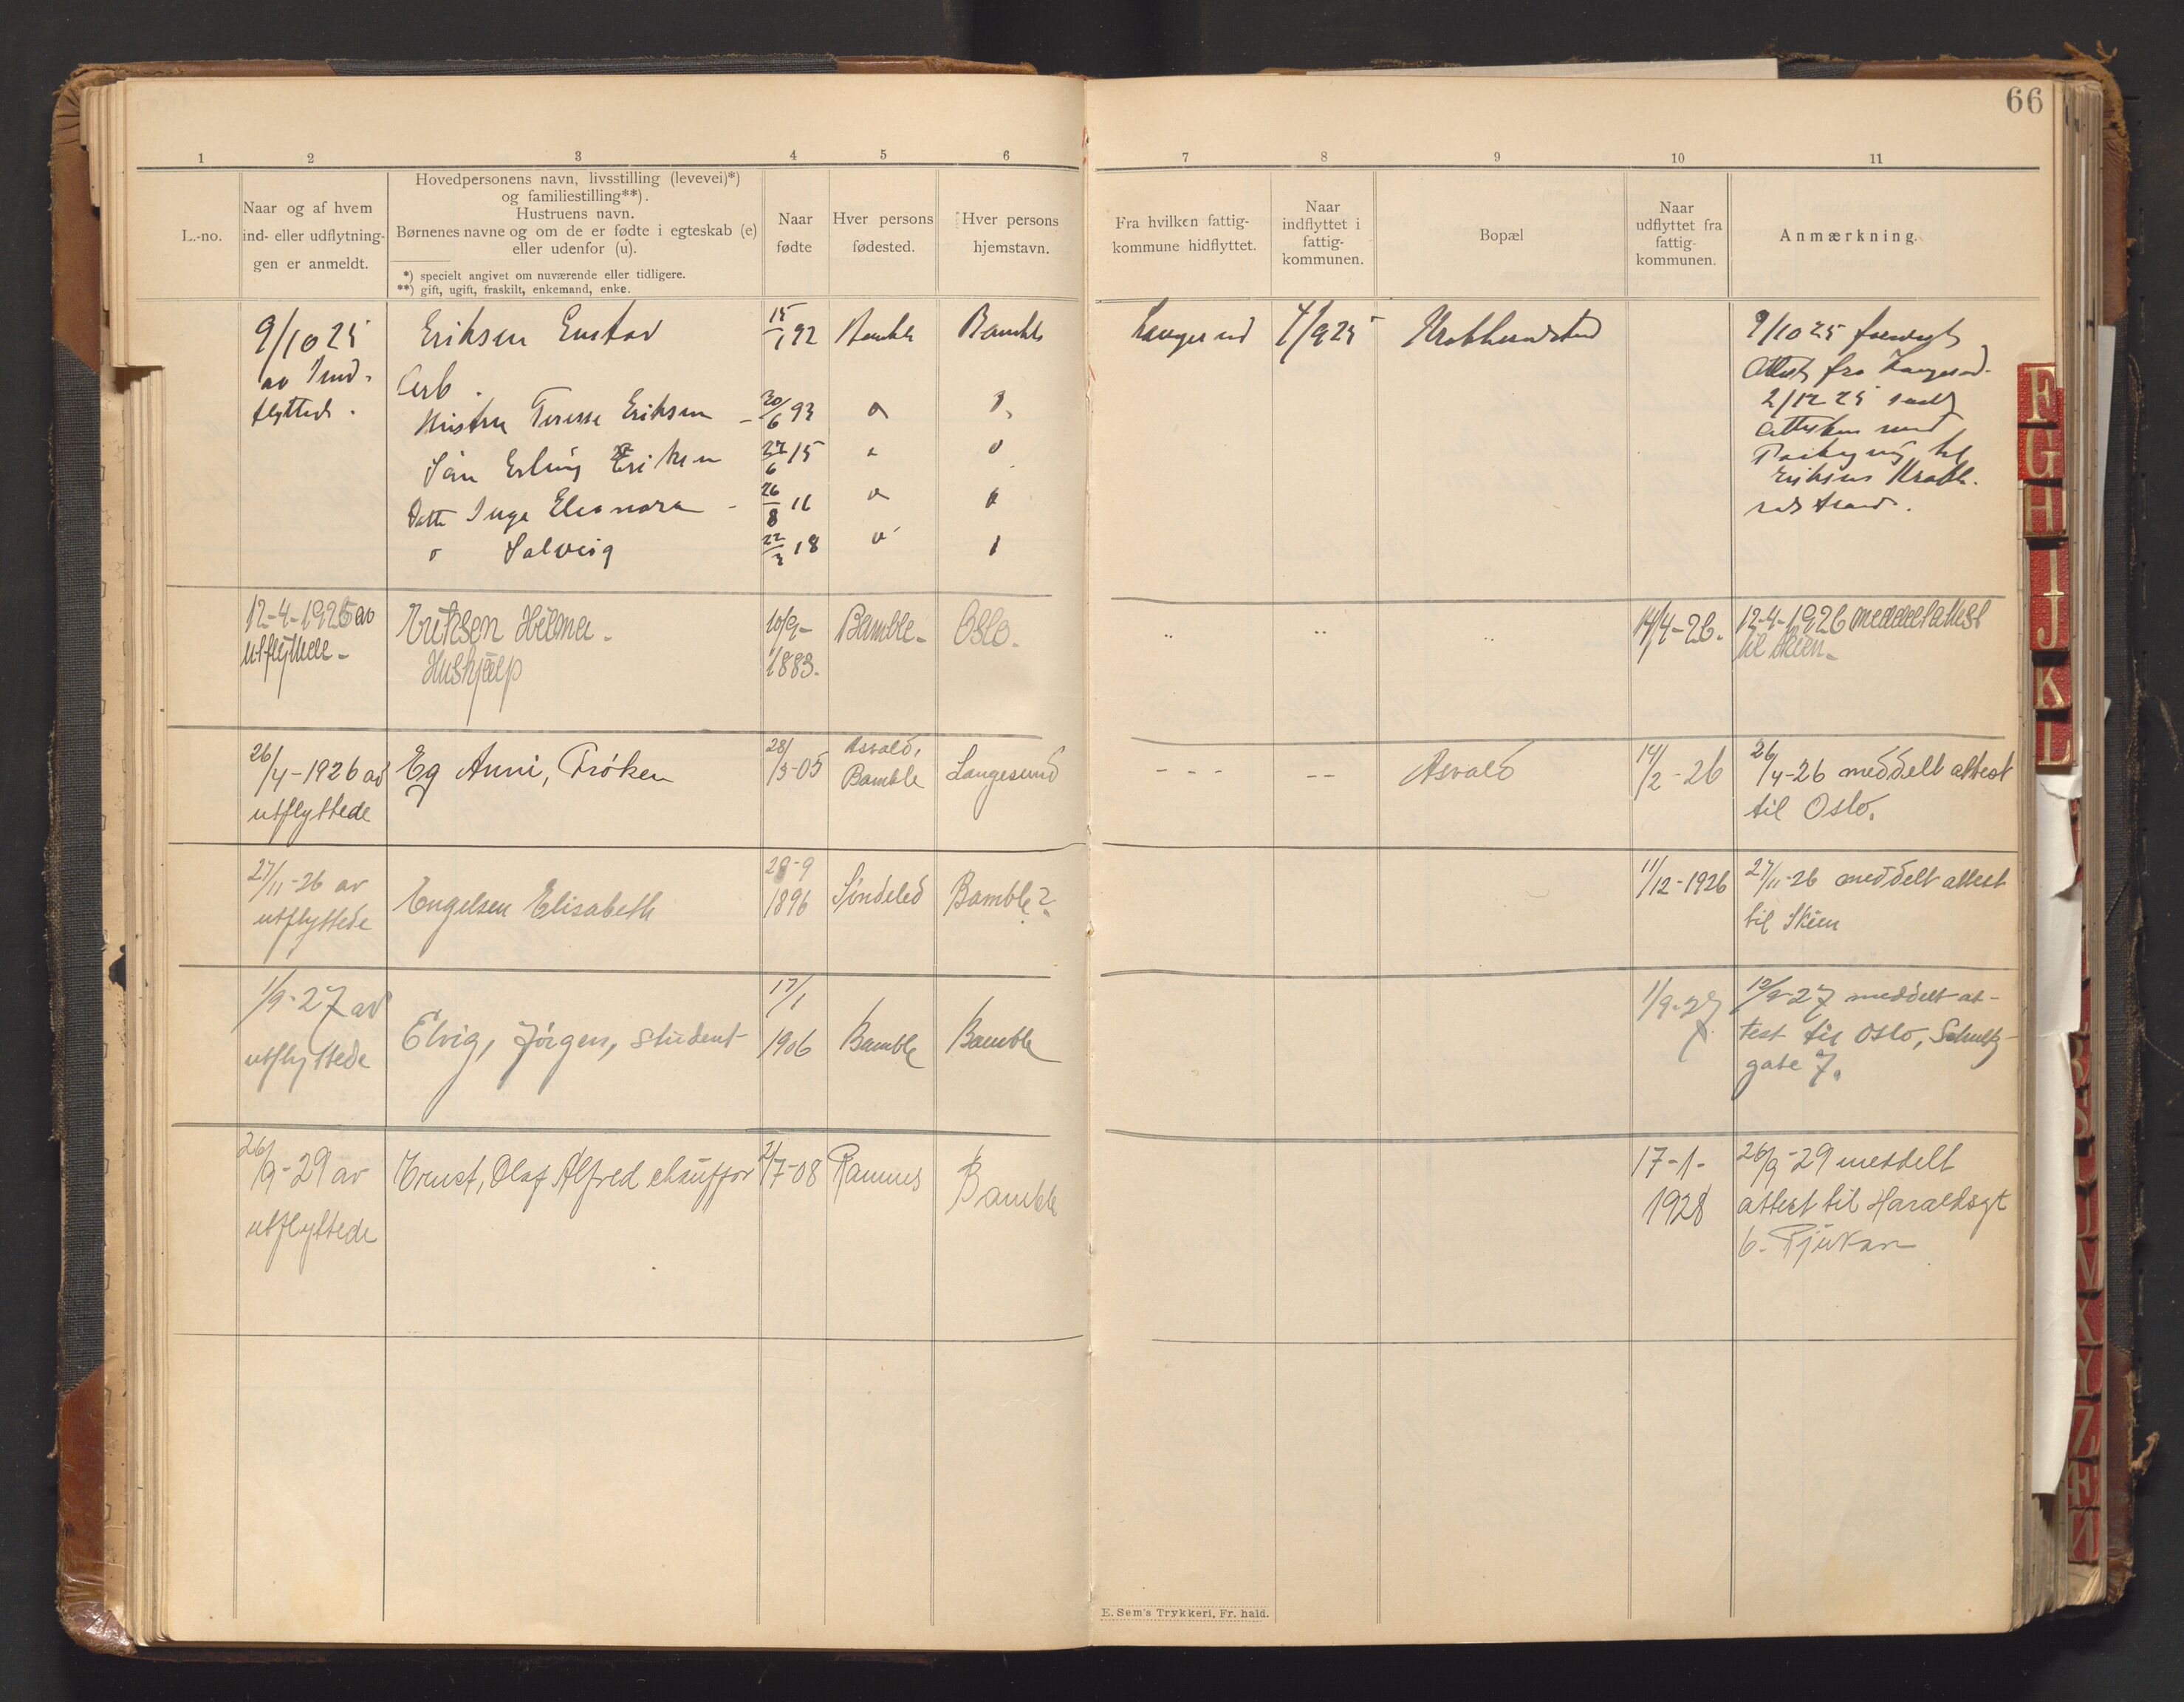 66
1 2 3 4 5 6 7 8 9 10 11
L.-no.
Naar og af hvem
ind- eller udflytnin-
gen er anmeldt.
Hovedpersonens navn, livsstilling (levevei)*)
og familiestilling**).
Hustruens navn.
Børnenes navne og om de er fødte i egteskab (e)
eller udenfor (u).
*) specielt angivet om nuværende eller tidligere.
**) gift, ugift, fraskilt, enkemand, enke.
Naar
fødte
Hver persons
fødested.
Hver persons
hjemstavn.
Fra hvilken fattig-
kommune hidflyttet.
Naar
indflyttet i
fattig-
kommunen.
Bopæl
Naar
udflyttet fra
fattig-
kommunen.
Anmærkning.
9/10 25
av Ind-
flytted.
Eriksen Gustav
Arb.
15/1 92 Bamble Bamble
Langesund
1/9 25
9/10 25
Attest fra Langesund.
2/12 25 sendt
Attesten med
til
Eriksen
Hustru Terese Eriksen - 30/6 93
Sön Erling Eriksen 27/6 15
Datter Inga Eleonora - 26/8 16
" Solveig 22/3 18
12-4-1926 av
utflyttede -
Eriksen Helma -
Hushjælp
10/9 -
1883.
Bamble - Oslo.
" " "
14/4-26.
12-4-1926 meddelt attest
til Skien -
26/4-1926 av
utflyttede
Eg Anni, Frøken
28/3-05
Asvald,
Bamble
Langesund
- - - - - Asvald
14/2-26
26/4-26 meddelt attest
til Oslo.
27/11-26 av
utflyttede
Engelsen Elisabeth
28-9
1896
Søndeled Bamble?
11/12-1926
27/11-26 meddelt attest
til Skien
1/9-27 av
utflyttede
Elvig, Jørgen, student
17/1
1906
Bamble Bamble
1/9-27
12/9-27 meddelt at-
test til Oslo, Schultz-
gate 7.
26/9-29 av
utflyttede
Ernst, Olaf Alfred chauffør
2/7-08 Ramnes Bamble
17-1-
1928
26/9-29 meddelt
attest til Haraldsgt
6. Rjukan
E. Sem's Trykkeri, Fr.hald.
F
G
H
I
J
K
L
V
K
Y
Z
Æ
Ø